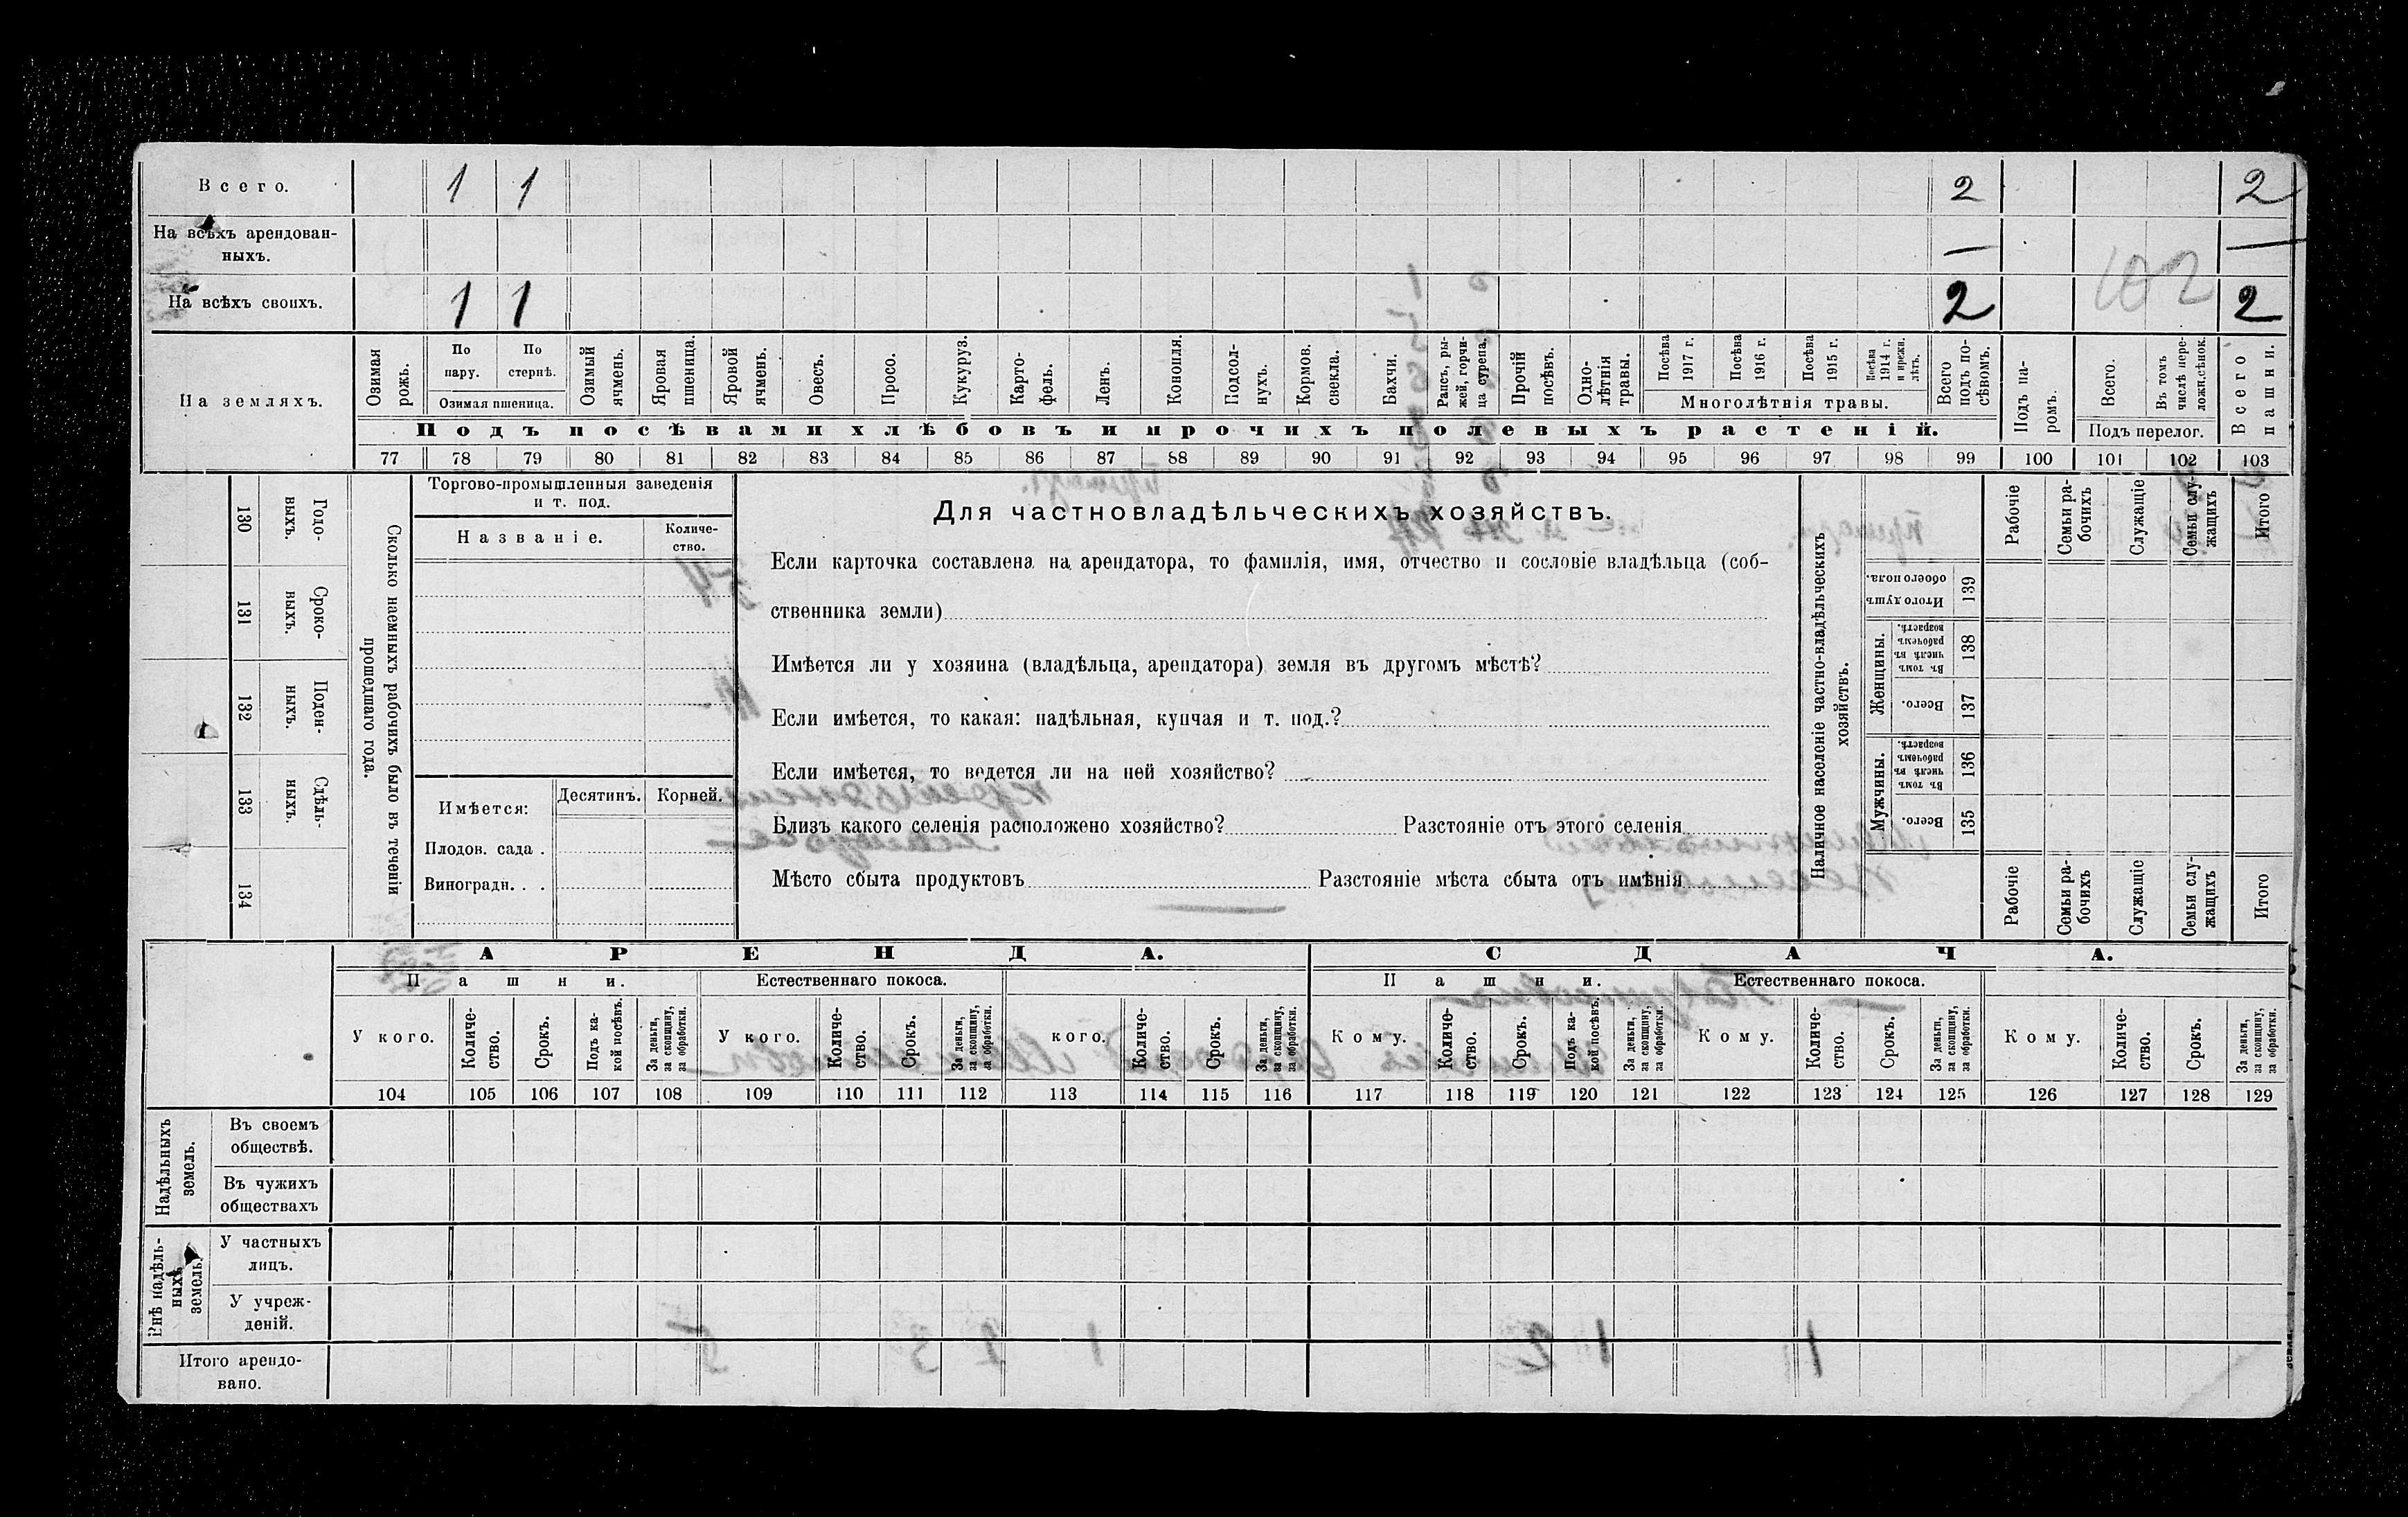 Всего. 1 1 2 2
На всѣхъ арендован-
ныхъ. — —
На всѣхъ своихъ. 1 1 2 102 2
На земляхъ.
Озимая
рожь.
По
пару.
По
стернѣ.
Озимая пшеница.
Озимый
ячмень.
Яровая
пшеница.
Яровой
ячмень.
Овесъ.
Просо.
Кукуруз.
Карто-
фель.
Ленъ.
Конопля.
Подсол-
нухъ.
Кормов.
свекла.
Бахчи.
Рапсъ, ры-
жей, горчи-
ца сурепа.
Прочій
посѣвъ.
Одно-
лѣтнія
травы.
Посѣва
1917 г.
Посѣва
1916 г.
Посѣва
1915 г.
Посѣва
1914 г.
и прежн.
лѣтъ.
Многолѣтнія травы.
Всего
подъ по-
сѣвомъ.
Подъ па-
ромъ.
Всего.
Въ томъ
числѣ пере-
ложн.сѣнок.
Подъ перелог.
Всего
пашни.
Подъ посѣвами хлѣбовъ и прочихъ полевыхъ растеній.
77 78 79 80 81 82 83 84 85 86 87 88 89 90 91 92 93 94 95 96 97 98 99 100 101 102 103
130 Годо-
выхъ.
131 Сроко-
выхъ.
132 Поден-
ныхъ.
133 Сдѣль-
ныхъ.
134
Сколько наемныхъ рабочихъ было въ теченіи
прошедшаго года.
Торгово-промышленныя заведенія
и т. под.
Названіе.
Количе-
ство.
Имѣется:
Десятинъ.
Корней.
Плодов. сада .
Виноградн. . .
Для частновладѣльческихъ хозяйствъ.
Если карточка составлена на арендатора, то фамилія, имя, отчество и сословіе владѣльца (соб-
ственника земли)
Имѣется ли у хозяина (владѣльца, арендатора) земля въ другомъ мѣстѣ?
Если имѣется, то какая: надѣльная, купчая и т. под.?
Если имѣется, то ведется ли на ней хозяйство?
Близъ какого селенія расположено хозяйство? Разстояніе отъ этого селенія
Мѣсто сбыта продуктовъ Разстояніе мѣста сбыта отъ имѣнія
Наличное населеніе частно-владѣльческихъ
хозяйствъ.
Рабочіе
Семьи ра-
бочихъ
Служащіе
Семьи слу-
жащихъ
Итого
Итого душъ
обоего пола.
139
Женщины.
Въ томъ
числѣ въ
рабочемъ
возрастѣ.
138
Всего.
137
Мужчины.
Въ томъ
числѣ въ
рабочемъ
возрастѣ.
136
Всего.
135
Рабочіе
Семьи ра-
бочихъ
Служащіе
Семьи слу-
жащихъ
Итого
АРЕНДА.
СДАЧА.
Пашни.
Естественнаго покоса.
Пашни.
Естественнаго покоса.
У кого.
Количе-
ство.
Срокъ.
Подъ ка-
кой посѣвъ.
За деньги,
за скопщину,
за обработки.
У кого.
Количе-
ство.
Срокъ.
За деньги,
за скопщину,
за обработки.
кого.
Количе-
ство.
Срокъ.
За деньги,
за скопщину,
за обработки.
Кому.
Количе-
ство.
Срокъ.
Подъ ка-
кой посѣвъ.
За деньги,
за скопщину,
за обработки.
Кому.
Количе-
ство.
Срокъ.
За деньги,
за скопщину,
за обработки.
Кому.
Количе-
ство.
Срокъ.
За деньги,
за скопщину,
за обработки.
104 105 106 107 108 109 110 111 112 113 114 115 116 117 118 119 120 121 122 123 124 125 126 127 128 129
Надѣльныхъ
земель.
Въ своемъ
обществѣ.
Въ чужихъ
обществахъ
Внѣ надѣль-
ныхъ
земель.
У частныхъ
лицъ.
У учреж-
деній.
Итого арендо-
вано.